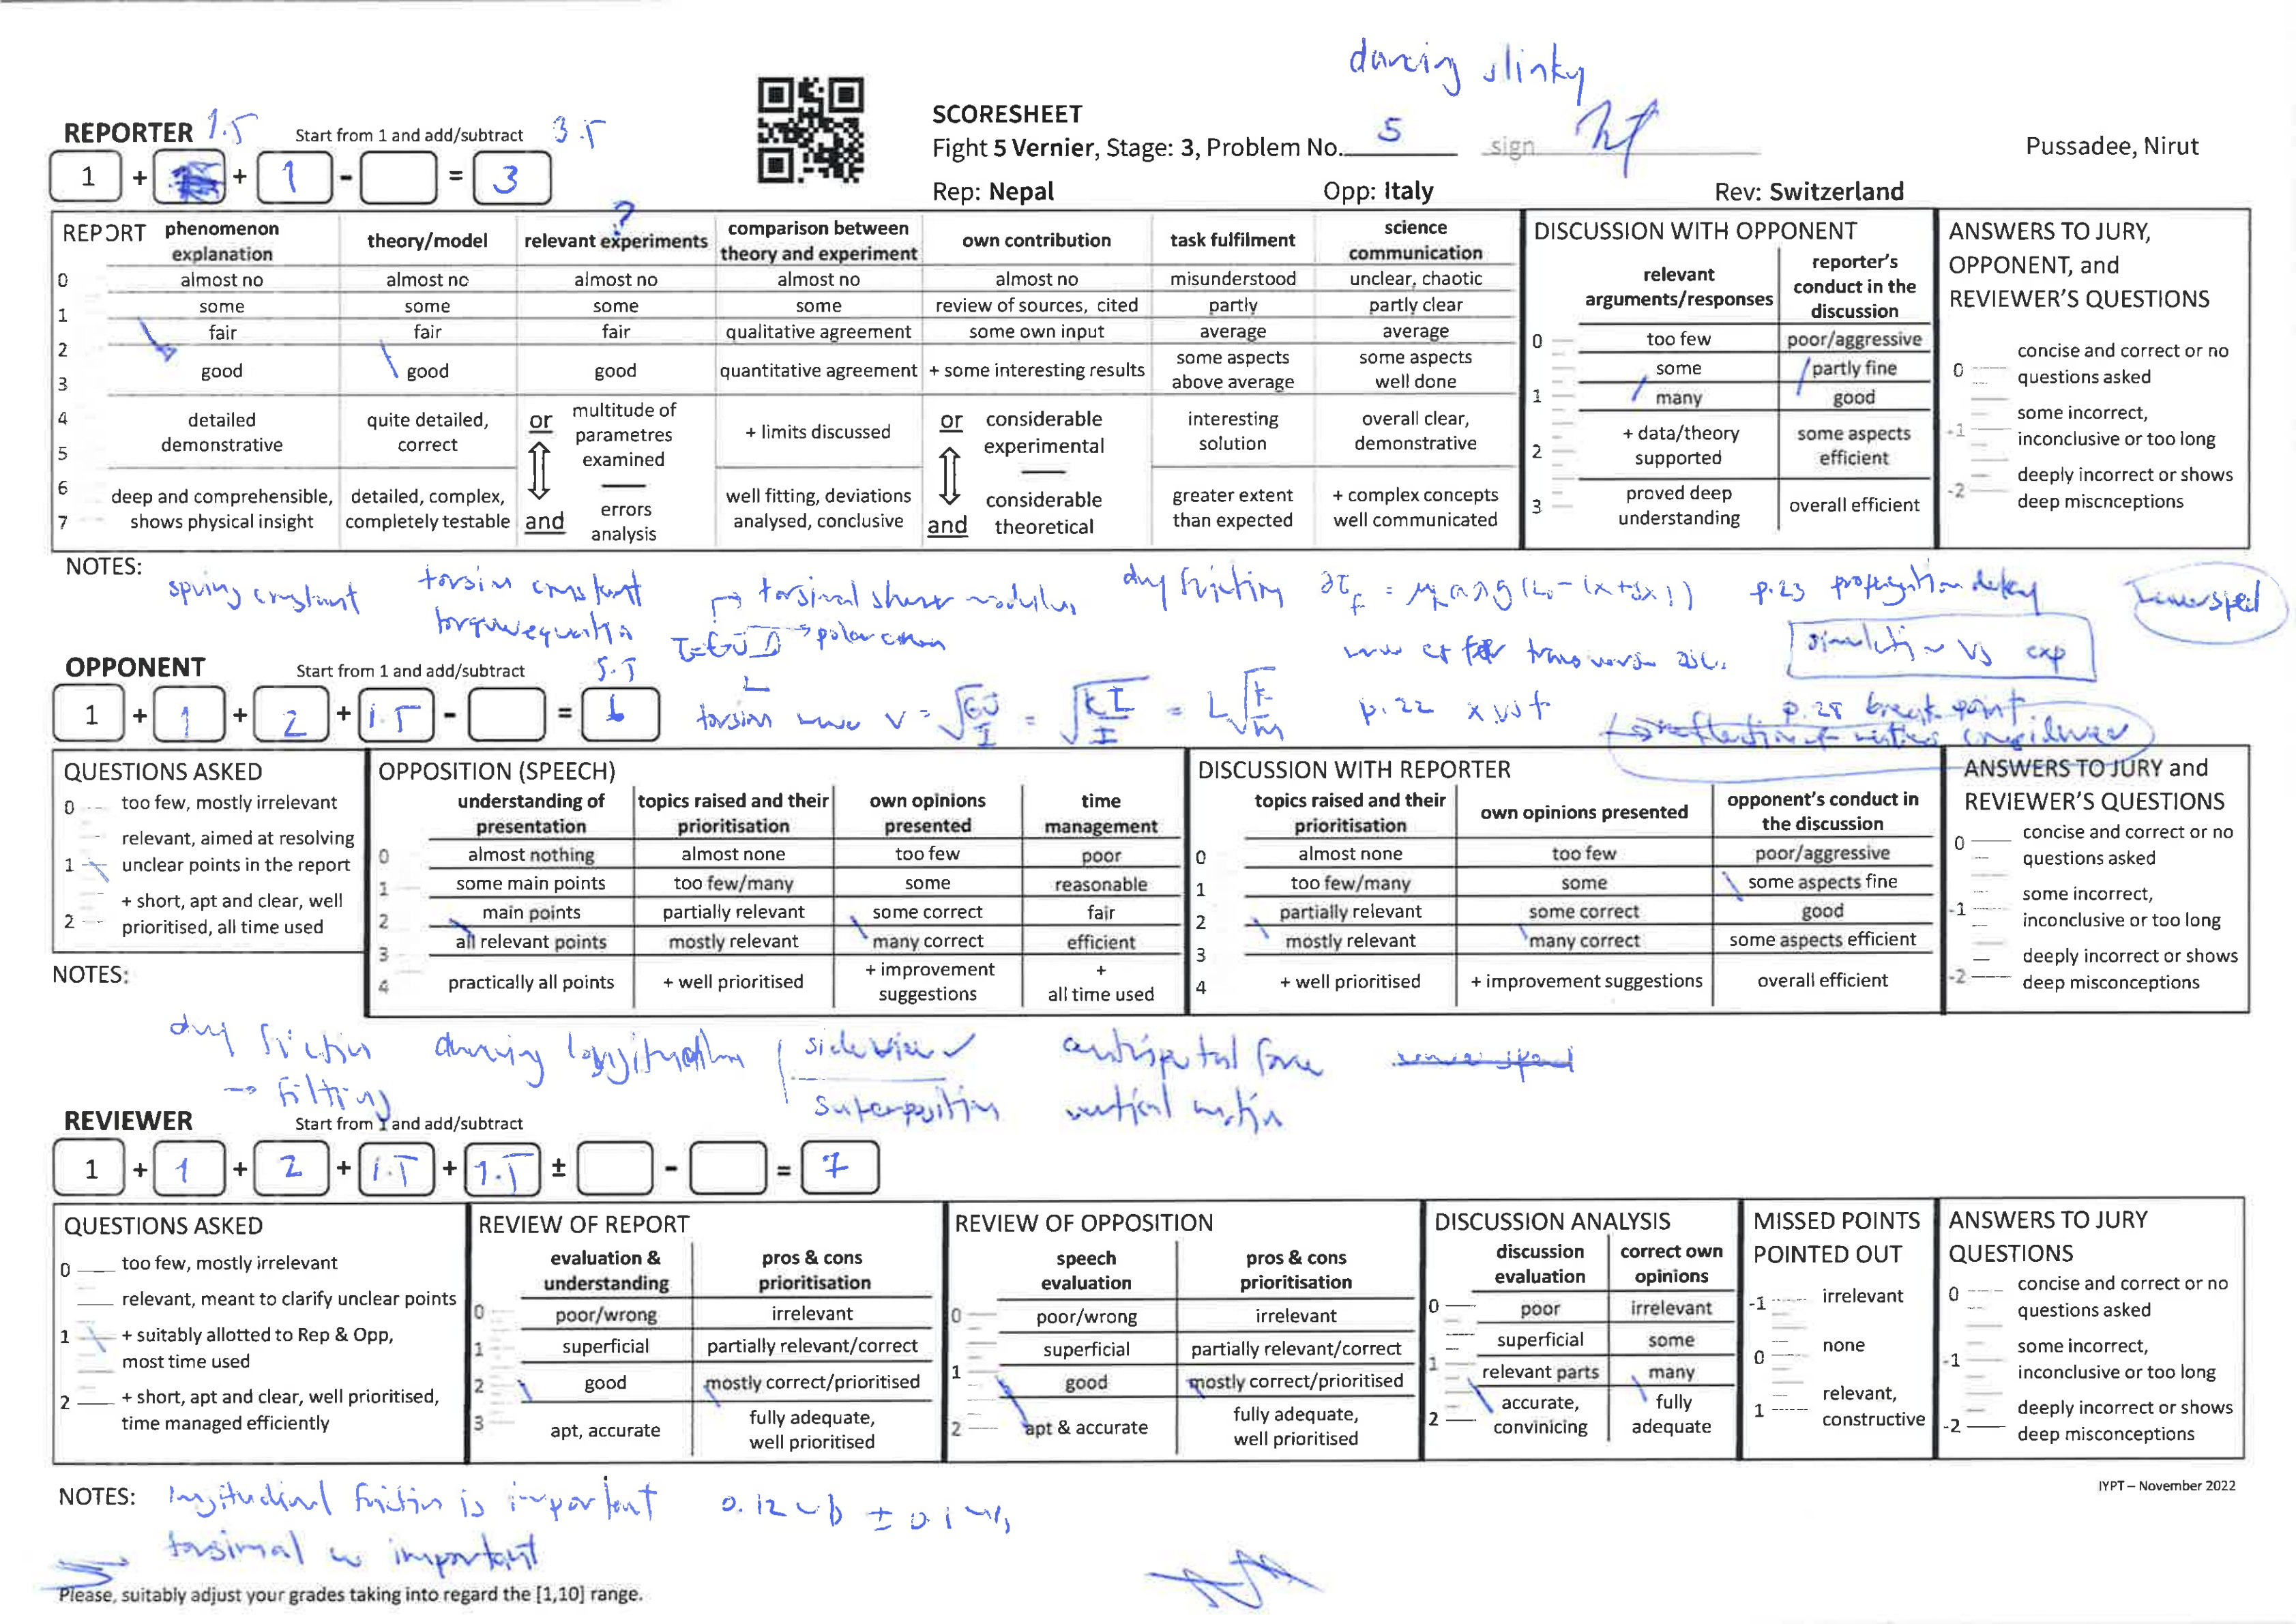 dancing slinky
SCORESHEET
REPORTER 1.5 Start from 1 and add/subtract 3.5
Fight 5 Vernier, Stage: 3, Problem No. 5 sign
Pussadee, Nirut
1 + + 1 - = 3
Rep: Nepal Opp: Italy Rev: Switzerland
?
REPORT phenomenon explanation theory/model relevant experiments comparison between theory and experiment own contribution task fulfilment science communication
0 almost no almost no almost no almost no almost no misunderstood unclear, chaotic
1 some some some some review of sources, cited partly partly clear
2 fair fair fair qualitative agreement some own input average average
3 good good good quantitative agreement + some interesting results some aspects above average some aspects well done
4 5 detailed demonstrative quite detailed, correct or multitude of parametres examined + limits discussed or considerable experimental interesting solution overall clear, demonstrative
6 7 deep and comprehensible, shows physical insight detailed, complex, completely testable and errors analysis well fitting, deviations analysed, conclusive and considerable theoretical greater extent than expected + complex concepts well communicated
DISCUSSION WITH OPPONENT
relevant arguments/responses reporter's conduct in the discussion
0 too few poor/aggressive
some partly fine
1 many good
2 + data/theory supported some aspects efficient
3 proved deep understanding overall efficient
ANSWERS TO JURY, OPPONENT, and REVIEWER'S QUESTIONS
0 concise and correct or no questions asked
-1 some incorrect, inconclusive or too long
-2 deeply incorrect or shows deep miscnceptions
NOTES:
spring constant torsion constant torsional shear modulus dry friction p.23 propagation delay
simulation vs exp
torsion wave p.22 x vs t
p.28 break point
OPPONENT Start from 1 and add/subtract 5.5
1 + 1 + 2 + 1.5 - = 6
QUESTIONS ASKED
0 too few, mostly irrelevant
relevant, aimed at resolving
1 unclear points in the report
+ short, apt and clear, well
2 prioritised, all time used
NOTES:
OPPOSITION (SPEECH)
understanding of presentation topics raised and their prioritisation own opinions presented time management
0 almost nothing almost none too few poor
1 some main points too few/many some reasonable
2 main points partially relevant some correct fair
3 all relevant points mostly relevant many correct efficient
4 practically all points + well prioritised + improvement suggestions + all time used
DISCUSSION WITH REPORTER
topics raised and their prioritisation own opinions presented opponent's conduct in the discussion
0 almost none too few poor/aggressive
1 too few/many some some aspects fine
2 partially relevant some correct good
3 mostly relevant many correct some aspects efficient
4 + well prioritised + improvement suggestions overall efficient
ANSWERS TO JURY and REVIEWER'S QUESTIONS
0 concise and correct or no questions asked
-1 some incorrect, inconclusive or too long
-2 deeply incorrect or shows deep misconceptions
dry friction side view centripetal force
→ fitting superposition vertical motion
REVIEWER Start from 1 and add/subtract
1 + 1 + 2 + 1.5 + 1.5 ± - = 7
QUESTIONS ASKED
0 too few, mostly irrelevant
relevant, meant to clarify unclear points
1 + suitably allotted to Rep & Opp,
most time used
2 + short, apt and clear, well prioritised,
time managed efficiently
REVIEW OF REPORT
evaluation & understanding pros & cons prioritisation
0 poor/wrong irrelevant
1 superficial partially relevant/correct
2 good mostly correct/prioritised
3 apt, accurate fully adequate, well prioritised
REVIEW OF OPPOSITION
speech evaluation pros & cons prioritisation
0 poor/wrong irrelevant
superficial partially relevant/correct
1 good mostly correct/prioritised
2 apt & accurate fully adequate, well prioritised
DISCUSSION ANALYSIS
discussion evaluation correct own opinions
0 poor irrelevant
superficial some
1 relevant parts many
2 accurate, convinicing fully adequate
MISSED POINTS POINTED OUT
-1 irrelevant
0 none
1 relevant, constructive
ANSWERS TO JURY QUESTIONS
0 concise and correct or no questions asked
-1 some incorrect, inconclusive or too long
-2 deeply incorrect or shows deep misconceptions
NOTES: longitudinal friction is important
IYPT – November 2022
torsional is important
Please, suitably adjust your grades taking into regard the [1,10] range.